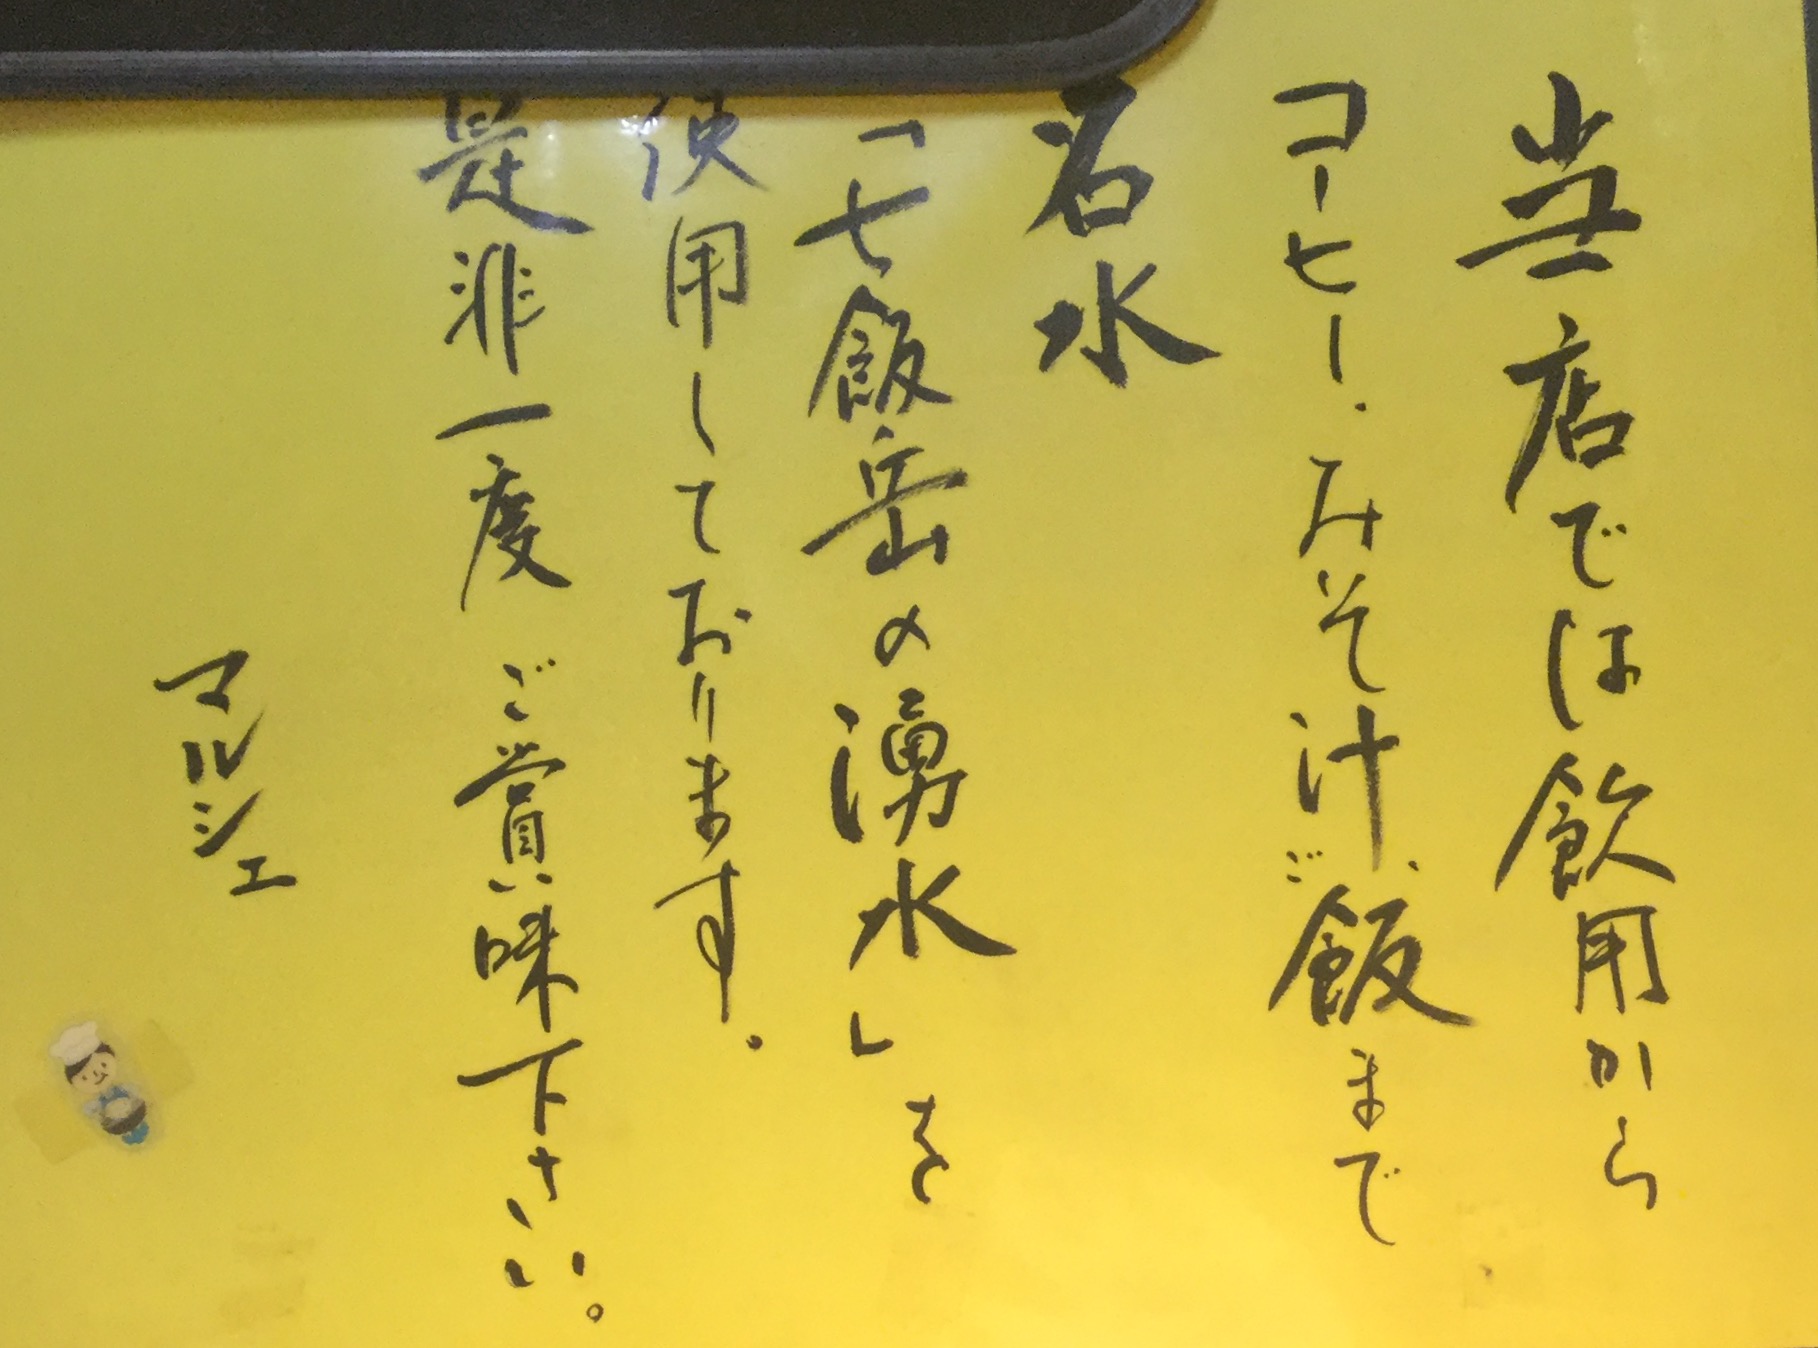 当店では飲用から
コーヒー・みそ汁・ご飯まで
名水
「七飯岳の湧水」を
使用しております。
是非一度 ご賞味下さい。
マルシェ